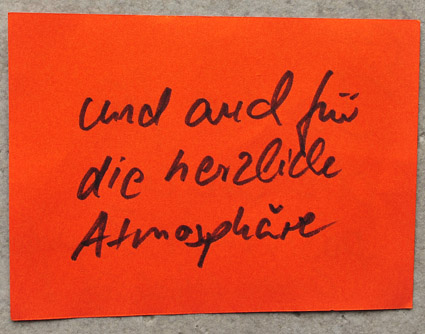 und auch für
die herzliche
Atmosphäre